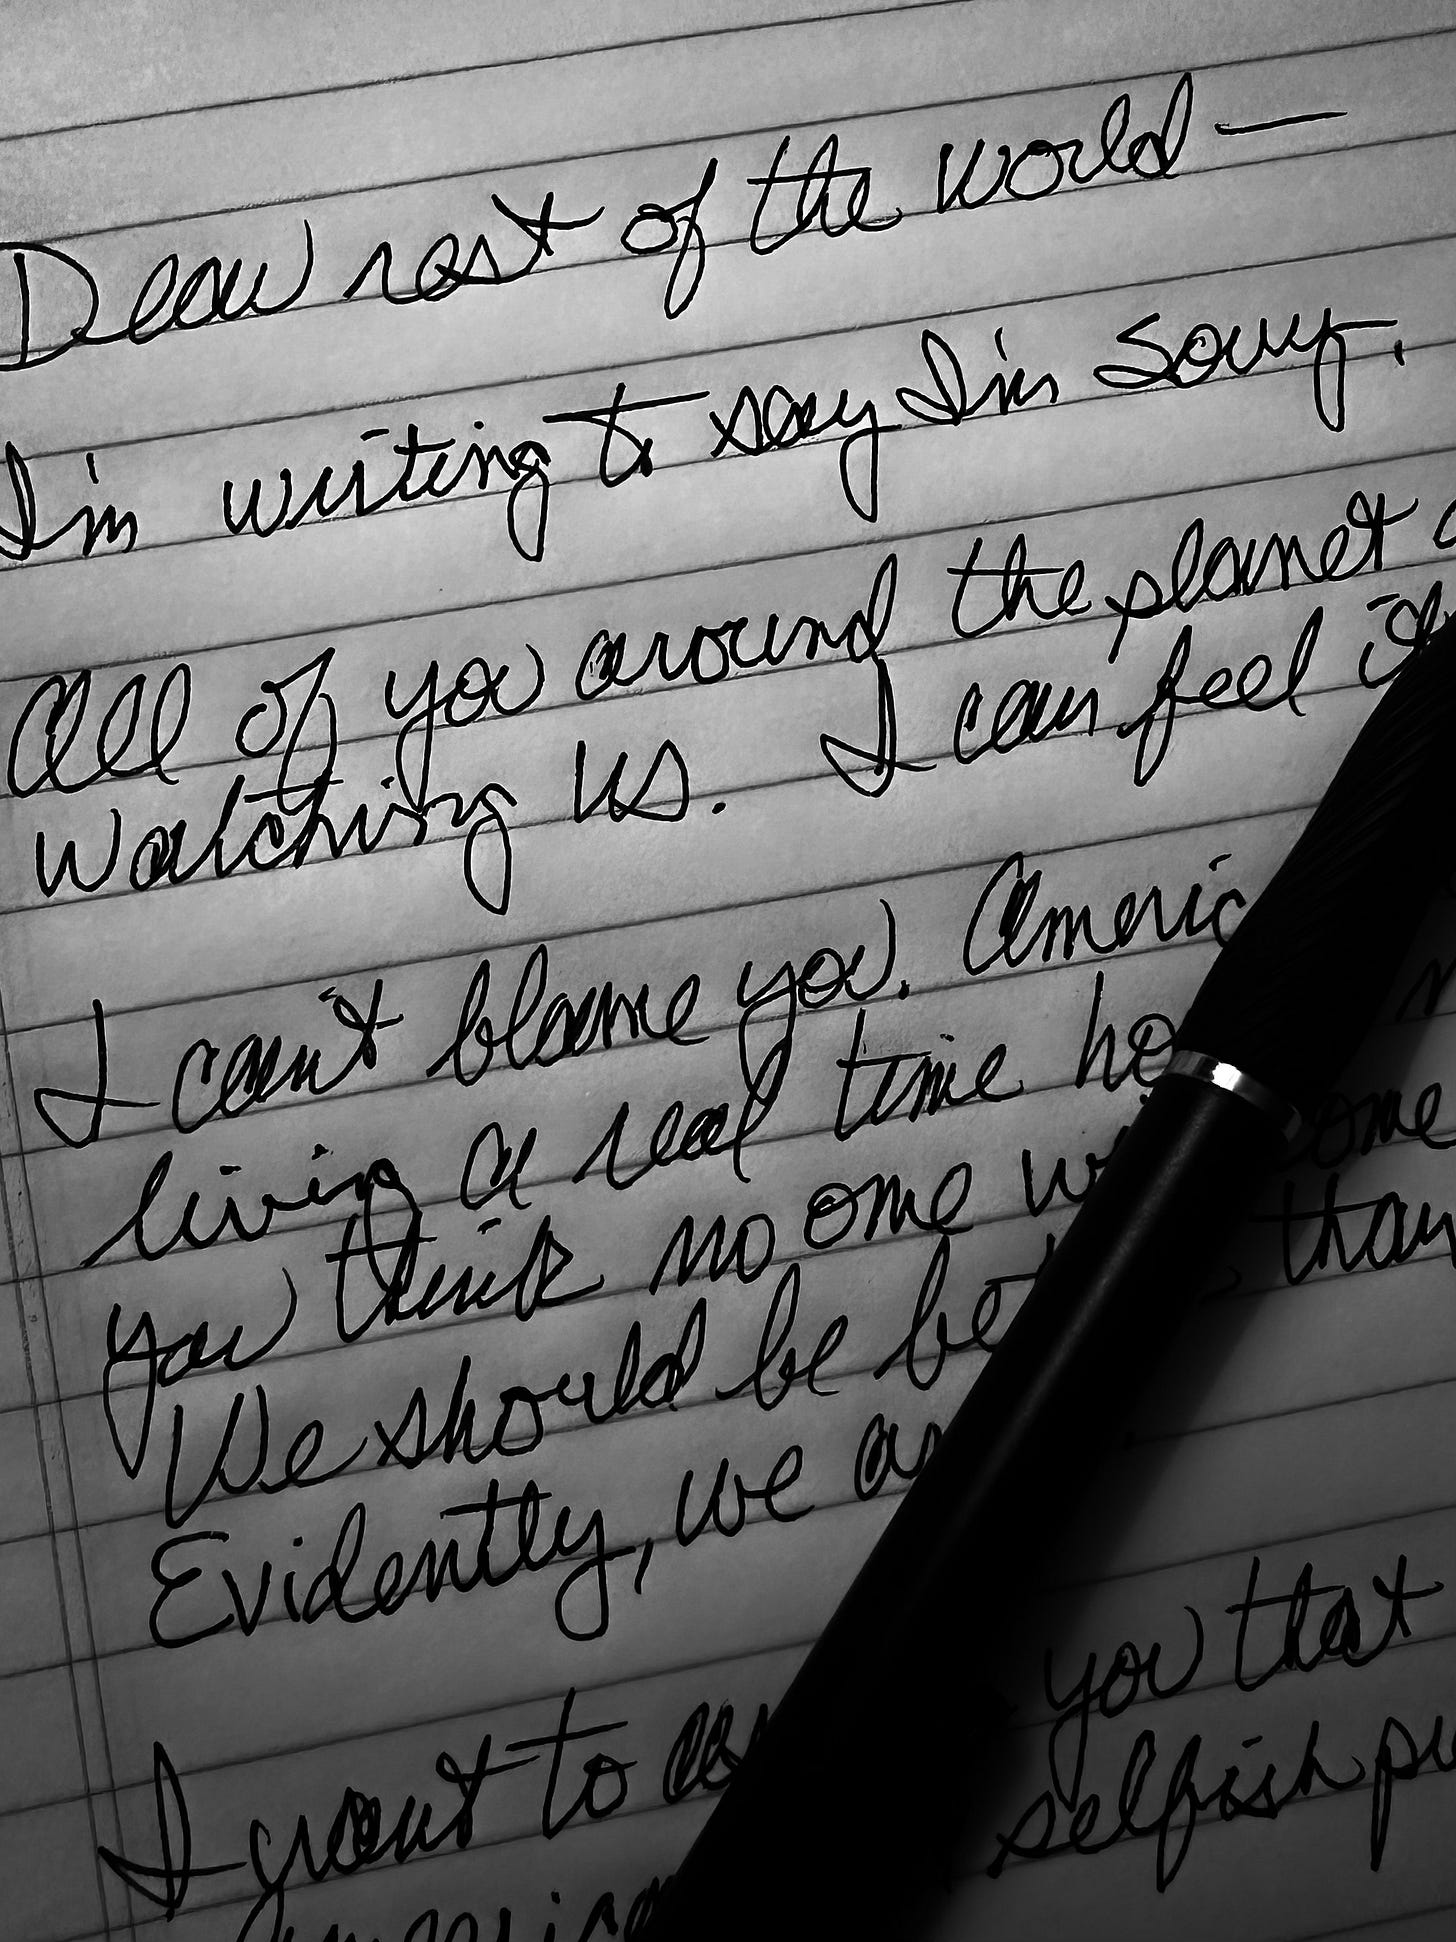 Dear rest of the world —
I'm writing to say I'm sorry.
All of you around the planet
watching us. I can feel it
I can't blame you. Americ
living a real time ho
you think no one wi ome
We should be bet than
Evidently, we a
I want to as you that
selfish pu